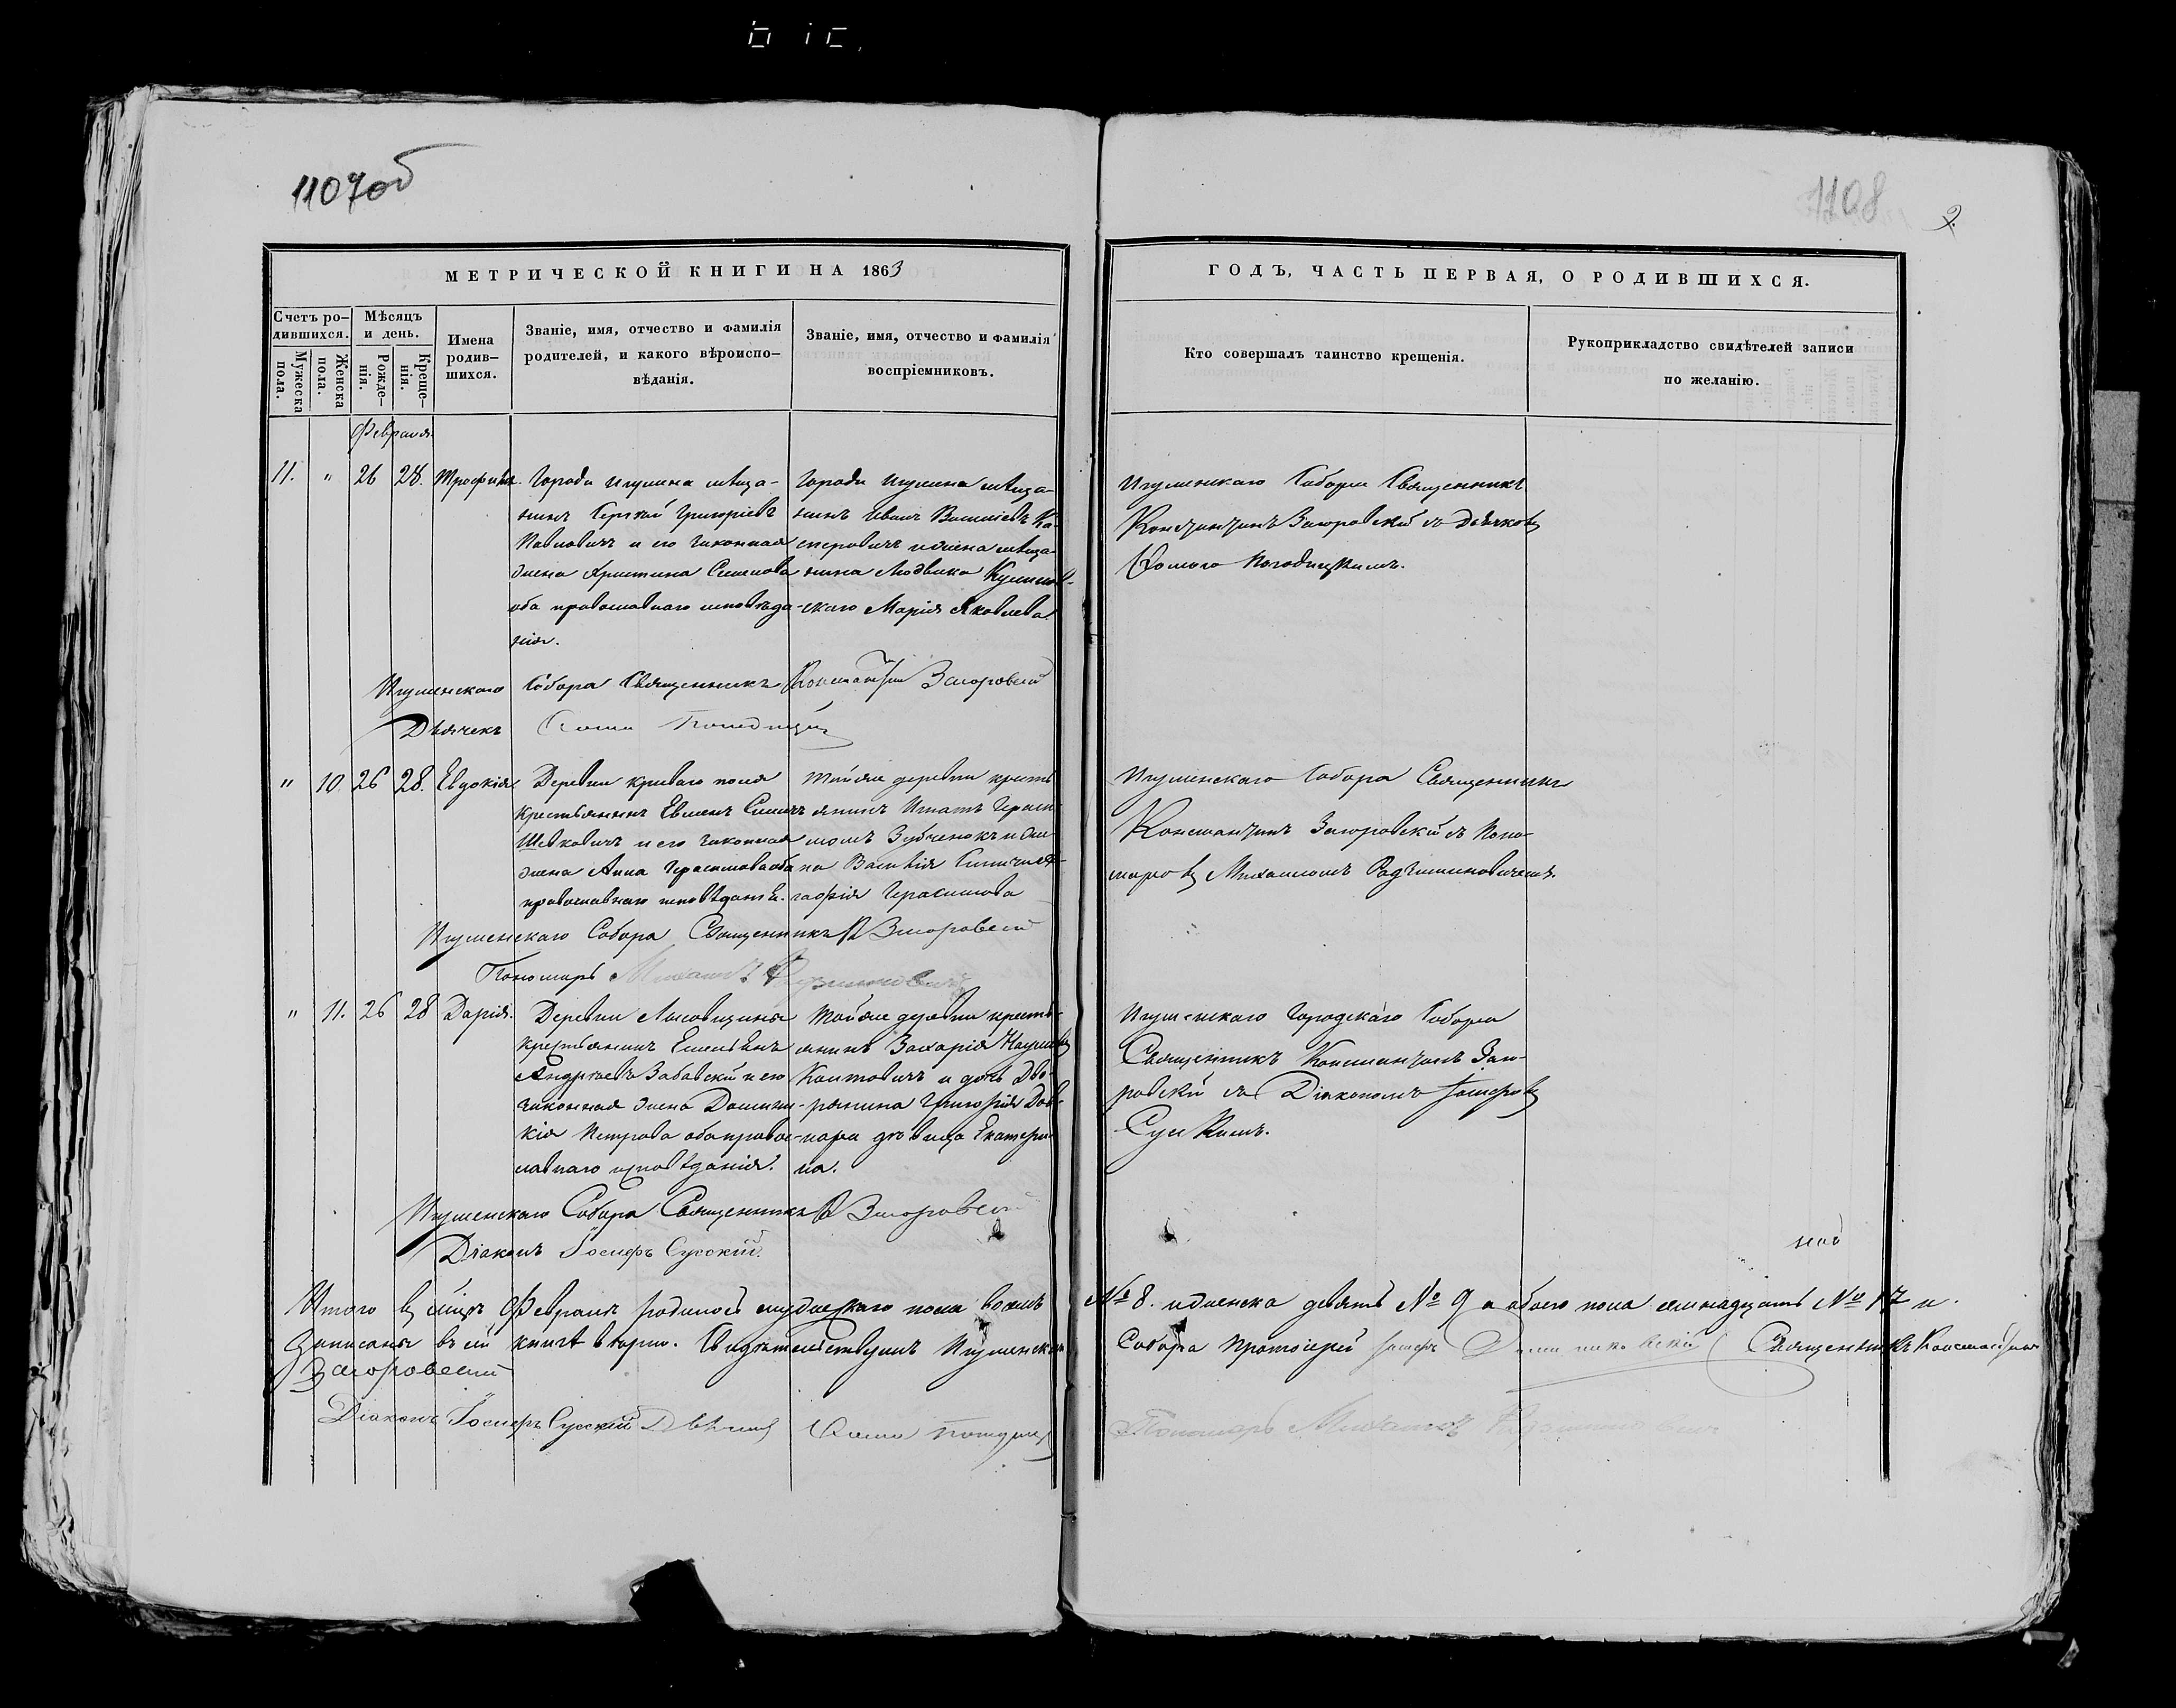 1107об
1108
2.
МЕТРИЧЕСКОЙ КНИГИ НА 1863
ГОДЪ, ЧАСТЬ ПЕРВАЯ, О РОДИВШИХСЯ.
Счетъ ро-
дившихся.
Мужеска
пола.
Женска
пола.
Мѣсяцъ
и день.
Рожде-
нія.
Креще-
нія.
Имена
родив-
шихся.
Званіе, имя, отчество и фамилія
родителей, и какого вѣроиспо-
вѣданія.
Званіе, имя, отчество и фамилія
воспріемниковъ.
Кто совершалъ таинство крещенія.
Рукоприкладство свидѣтелей записи
по желанію.
Февраля.
11. " 26 28. Трофимъ.
Города Игумена мѣща-
нинъ Сергѣй Григоріевъ
Павловичъ и его законная
жена Христина Семенова
оба православнаго исповѣда-
нія.
Города Игумена мѣща-
нинъ Иванъ Василіевъ Ка-
сперовичъ и жена мѣща-
нина Людвика
-скаго Марія Яковлева
Игуменскаго Собора Священникъ
Константинъ Загоровскій съ Дьячкомъ
Ѳомою
Игуменскаго Собора Священникъ Константинъ Загоровскій
Дьячекъ Ѳома
" 10. 26 28. Евдокія.
Деревни Криваго поля
крестьянинъ
Шевковичъ и его законная
жена Анна Герасимова оба
православнаго исповѣданія.
Тойже деревни кресть
янинъ Игнатъ Гераси-
мовъ Зубченокъ и же-
на Василія
Герасимова
Игуменскаго Собора Священникъ
Константинъ Загоровскій съ Поно-
маремъ Михаиломъ
Игуменскаго Собора Священникъ К Загоровскій
Пономарь Михаилъ
" 11. 26 28 Дарія.
Деревни
крестьянинъ Емельянъ
Андреевъ Забавскій и его
законная жена Домини-
кія Петрова оба правос-
лавнаго исповѣданія.
Тойже деревни кресть-
янинъ Захарія Наумовъ
и дочь Дво-
рянина Григорія
дѣвица Екатери-
на.
Игуменскаго Городскаго Собора
Священникъ Константинъ Заго-
ровскій съ Діакономъ Іосифомъ
Сускимъ.
Игуменскаго Собора Священникъ К Загоровскій
Діаконъ Іосифъ Сускій.
Итого въ мѣцѣ Февралѣ родилось мужескаго пола восемь № 8. и женска девять № 9 а обоего пола семнадцать № 17 и
записаны въ сей книгѣ вѣрно. Свидѣтельствуемъ Игуменскаго Собора Протоіерей Іосифъ Священникъ Константинъ
Загоровскій
Діаконъ Іосифъ Сускій Дьячекъ Ѳома Пономарь Михаилъ